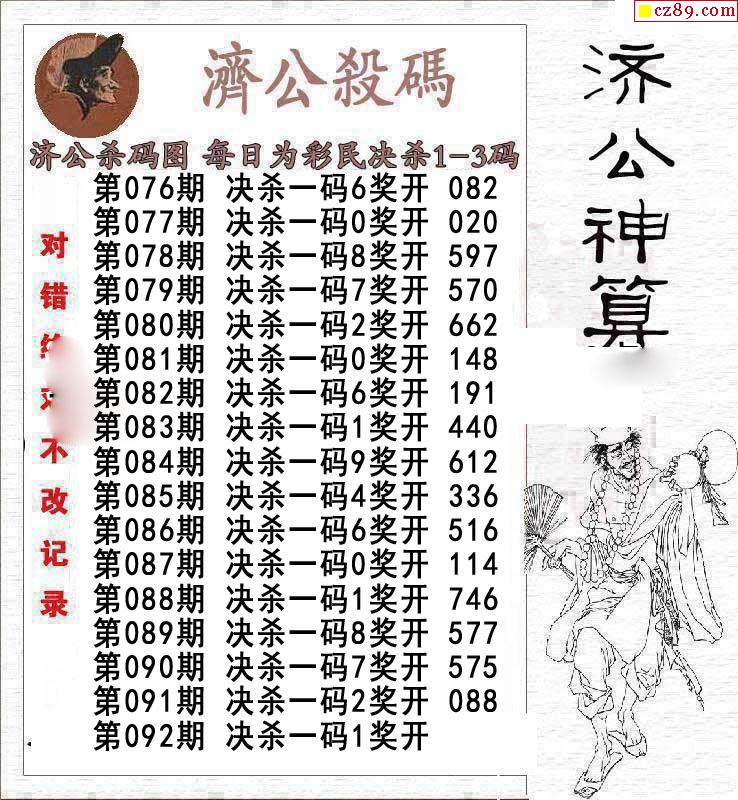 cz89.com
濟公殺碼
济公杀码图 每日为彩民决杀1-3码
第076期 决杀一码6奖开 082
第077期 决杀一码0奖开 020
第078期 决杀一码8奖开 597
第079期 决杀一码7奖开 570
第080期 决杀一码2奖开 662
第081期 决杀一码0奖开 148
第082期 决杀一码6奖开 191
第083期 决杀一码1奖开 440
第084期 决杀一码9奖开 612
第085期 决杀一码4奖开 336
第086期 决杀一码6奖开 516
第087期 决杀一码0奖开 114
第088期 决杀一码1奖开 746
第089期 决杀一码8奖开 577
第090期 决杀一码7奖开 575
第091期 决杀一码2奖开 088
第092期 决杀一码1奖开
对错不改记录
济公神算